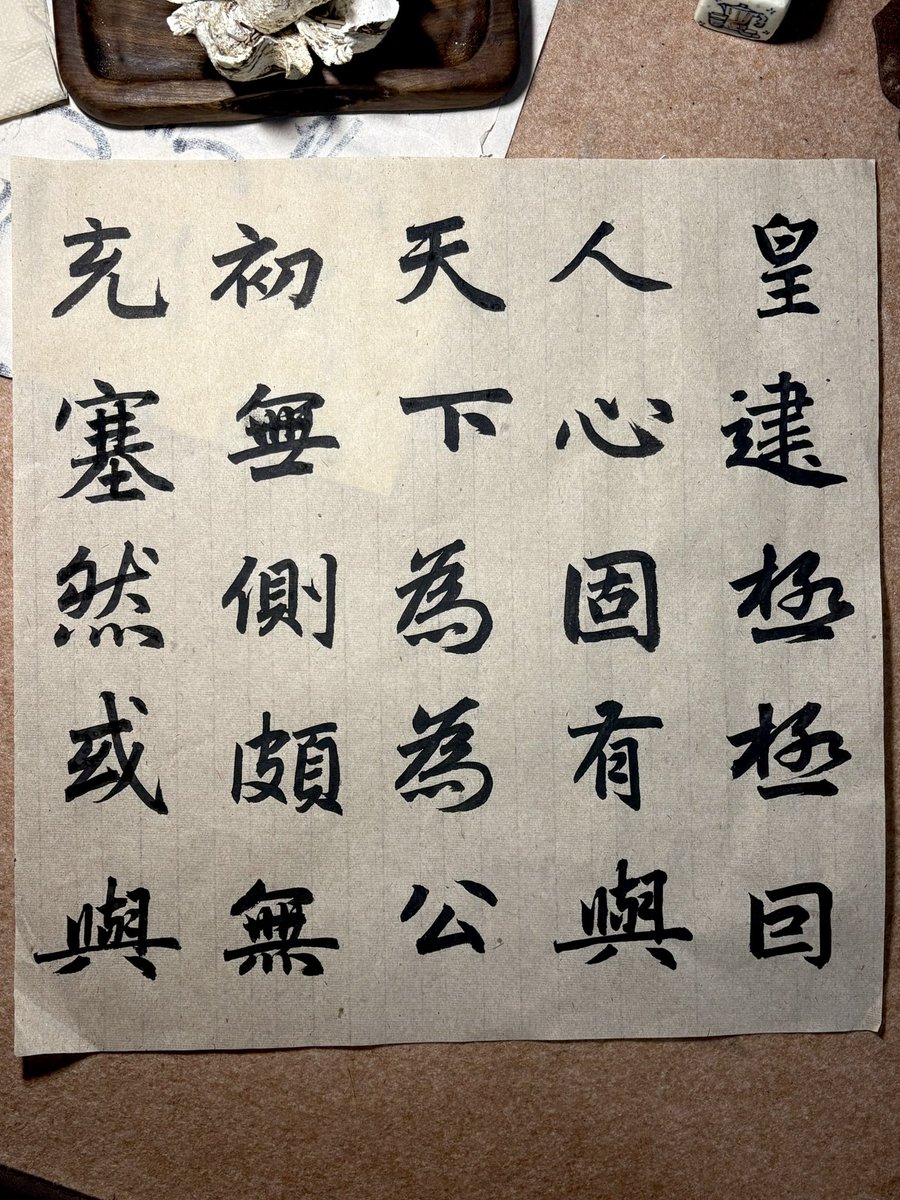 皇建極極回
人心固有與
天下為為公
初無側頗無
充塞然或與